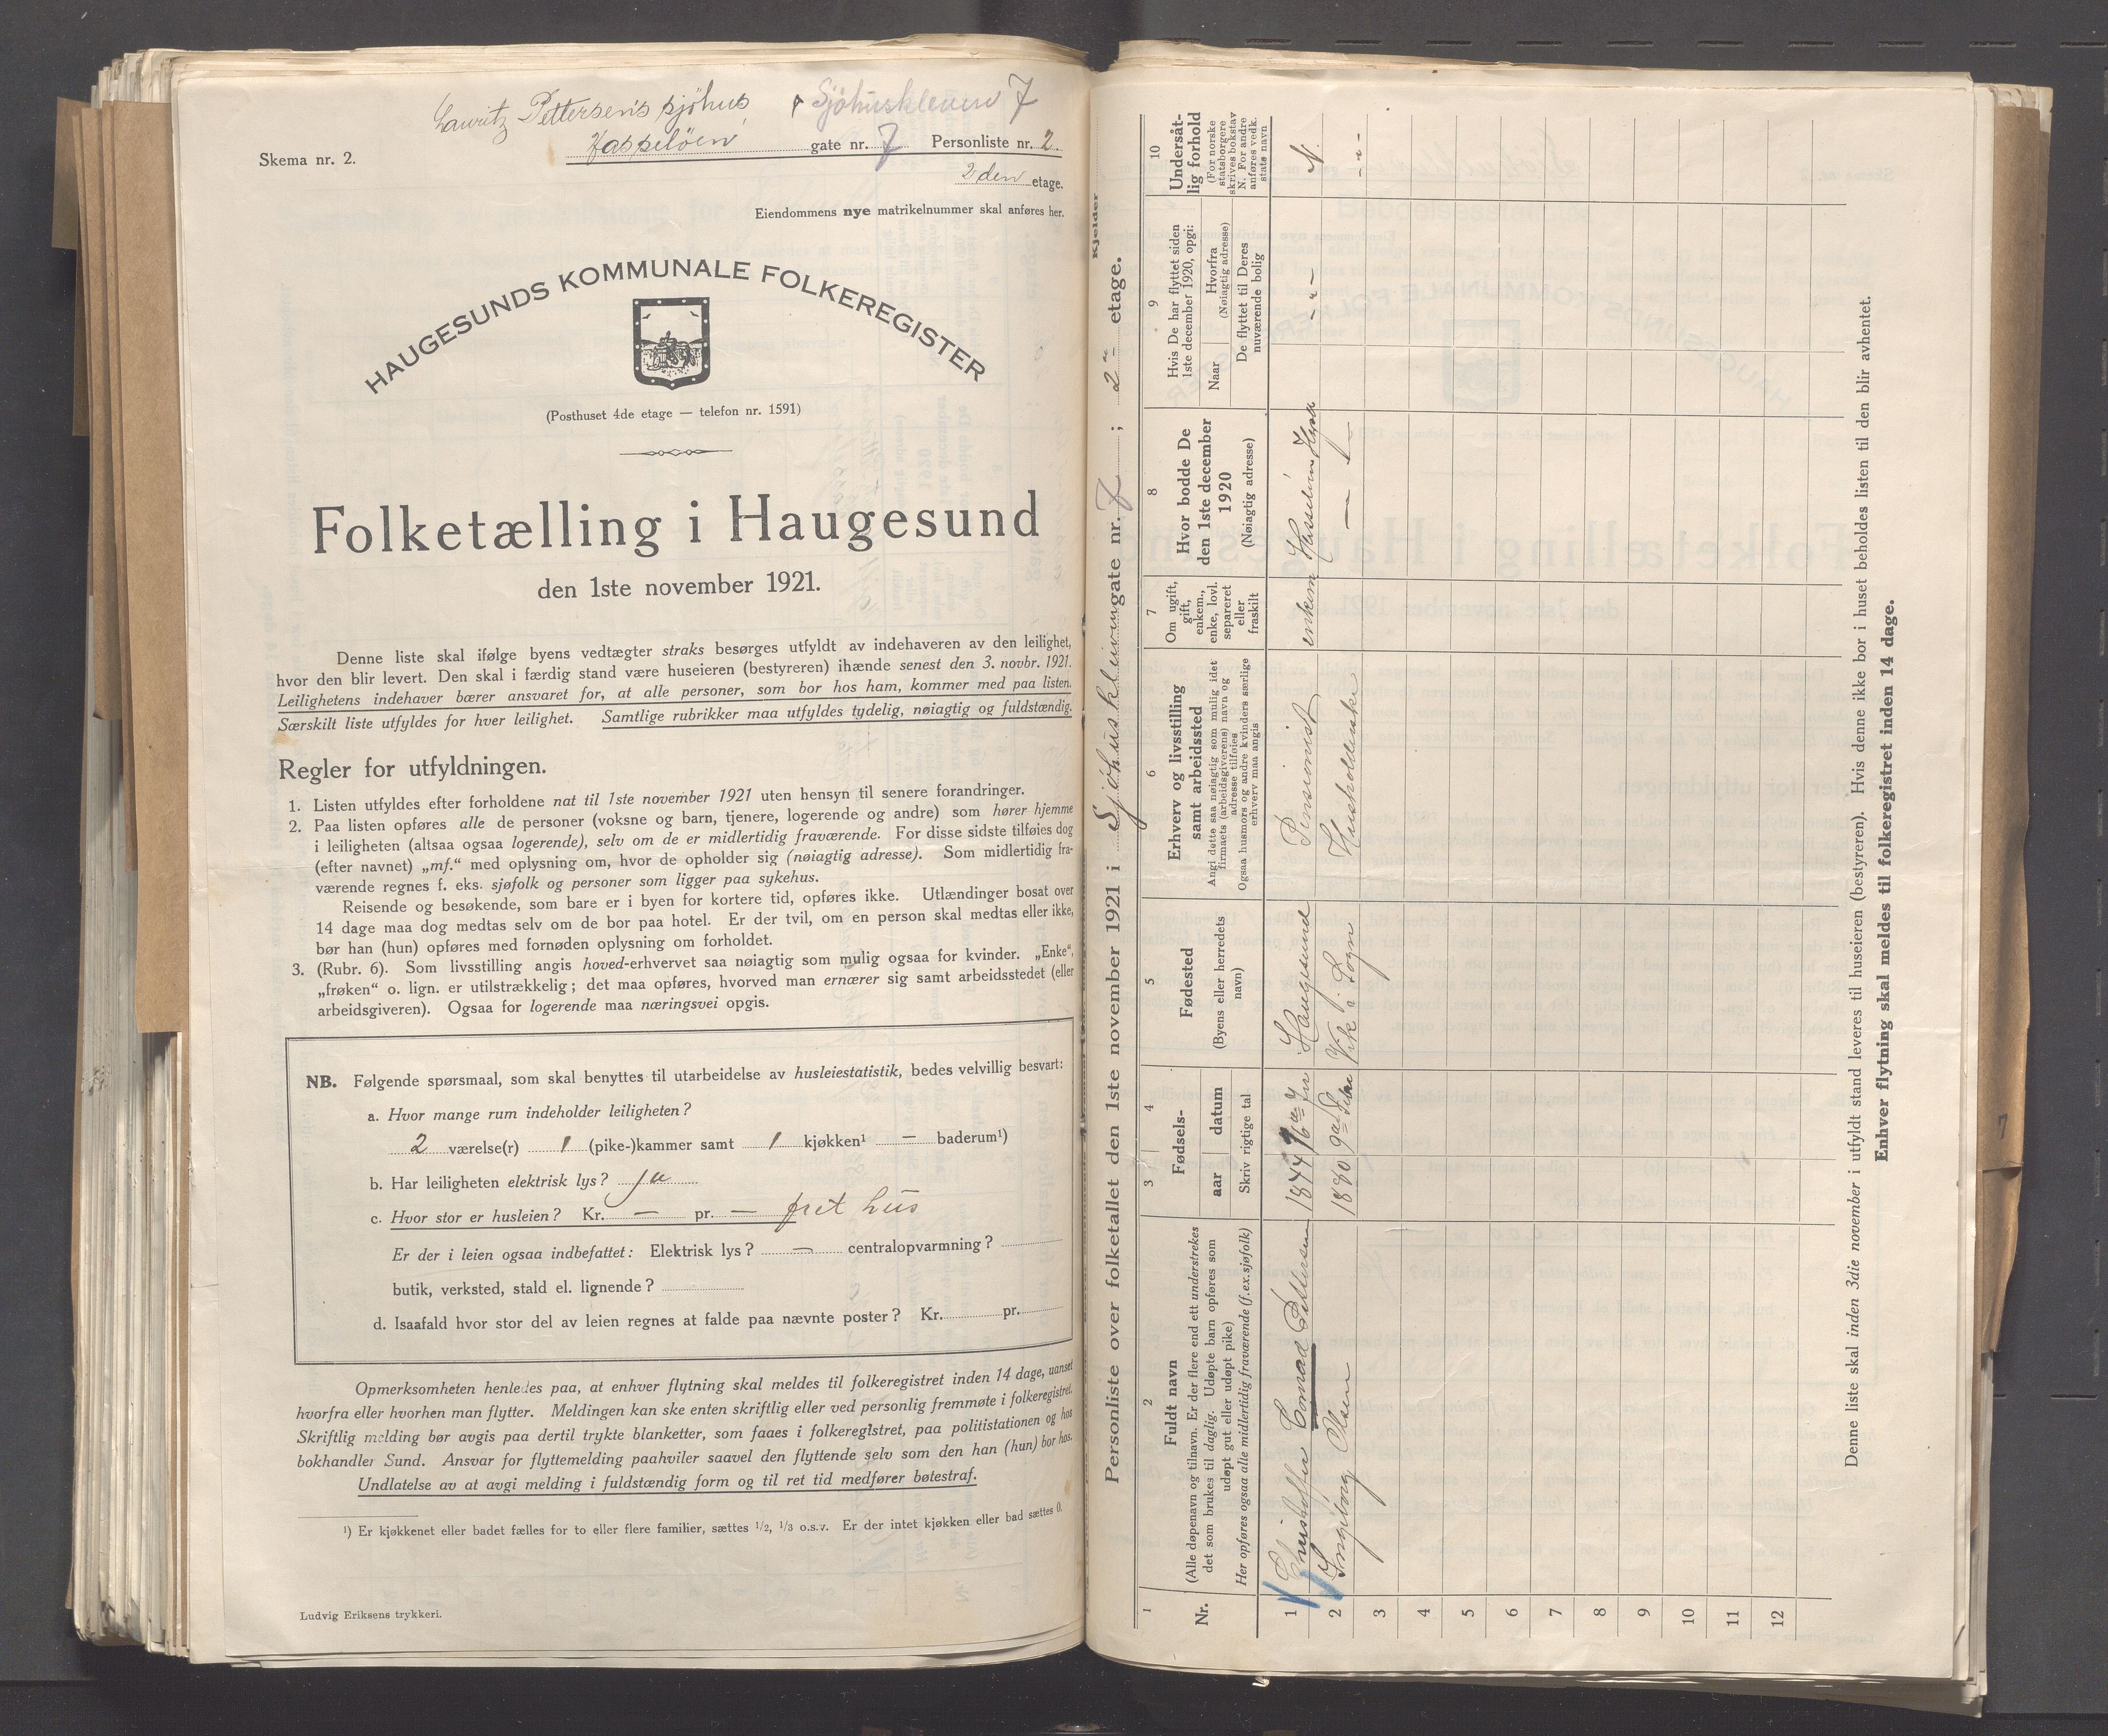 Lauritz Pettersens sjöhus Sjöhuskleven 7
Skema nr. 2.
gate nr. 7 Personliste nr. 2.
2den etage.
Eiendommens nye matrikelnummer skal anføres her.
HAUGESUNDS KOMMUNALE FOLKEREGISTER
(Posthuset 4de etage — telefon nr. 1591)
Folketælling i Haugesund
den 1ste november 1921.
Denne liste skal ifølge byens vedtægter straks besørges utfyldt av indehaveren av den leilighet,
hvor den blir levert. Den skal i færdig stand være huseieren (bestyreren) ihænde senest den 3. novbr. 1921.
Leilighetens indehaver bærer ansvaret for, at alle personer, som bor hos ham, kommer med paa listen.
Særskilt liste utfyldes for hver leilighet. Samtlige rubrikker maa utfyldes tydelig, nøiagtig og fuldstændig.
Regler for utfyldningen.
1. Listen utfyldes efter forholdene nat til 1ste november 1921 uten hensyn til senere forandringer.
2. Paa listen opføres alle de personer (voksne og barn, tjenere, logerende og andre) som hører hjemme
i leiligheten (altsaa ogsaa logerende), selv om de er midlertidig fraværende. For disse sidste tilføies dog
(efter navnet) „mf.“ med oplysning om, hvor de opholder sig (nøiagtig adresse). Som midlertidig fra-
værende regnes f. eks. sjøfolk og personer som ligger paa sykehus.
Reisende og besøkende, som bare er i byen for kortere tid, opføres ikke. Utlændinger bosat over
14 dage maa dog medtas selv om de bor paa hotel. Er der tvil, om en person skal medtas eller ikke,
bør han (hun) opføres med fornøden oplysning om forholdet.
3. (Rubr. 6). Som livsstilling angis hoved-erhvervet saa nøiagtig som mulig ogsaa for kvinder. „Enke“,
„frøken“ o. lign. er utilstrækkelig; det maa opføres, hvorved man ernærer sig samt arbeidsstedet (eller
arbeidsgiveren). Ogsaa for logerende maa næringsvei opgis.
NB. Følgende spørsmaal, som skal benyttes til utarbeidelse av husleiestatistik, bedes velvillig besvart:
a. Hvor mange rum indeholder leiligheten?
2 værelse(r) 1 (pike-)kammer samt 1 kjøkken¹ — baderum¹)
b. Har leiligheten elektrisk lys? ja
c. Hvor stor er husleien? Kr. — pr. — frit hus
Er der i leien ogsaa indbefattet: Elektrisk lys? — centralopvarmning?
butik, verksted, stald el. lignende?
d. Isaafald hvor stor del av leien regnes at falde paa nævnte poster? Kr. pr.
Opmerksomheten henledes paa, at enhver flytning skal meldes til folkeregistret inden 14 dage, uanset
hvorfra eller hvorhen man flytter. Meldingen kan ske enten skriftlig eller ved personlig fremmøte i folkeregistret.
Skriftlig melding bør avgis paa dertil trykte blanketter, som faaes i folkeregistret, paa politistationen og hos
bokhandler Sund. Ansvar for flyttemelding paahviler saavel den flyttende selv som den han (hun) bor hos.
Undlatelse av at avgi melding i fuldstændig form og til ret tid medfører bøtestraf.
¹) Er kjøkkenet eller badet fælles for to eller flere familier, sættes 1/2, 1/3 o.s.v. Er der intet kjøkken eller bad sættes 0.
Ludvig Eriksens trykkeri.
Kjelder
Personliste over folketallet den 1ste november 1921 i Sjöhuskleven gate nr. 7 ; 2 etage.
1 2 3 4 5 6 7 8 9 10
Nr.
Fuldt navn
(Alle døpenavn og tilnavn. Er der flere end ett understrekes
det som brukes til daglig. Udøpte barn opføres som
udøpt gut eller udøpt pike)
Her opføres ogsaa alle midlertidig fraværende (f.ex. sjøfolk)
Fødsels-
aar datum
Skriv rigtige tal
Fødested
(Byens eller herredets
navn)
Erhverv og livsstilling
samt arbeidssted
Angi dette saa nøiagtig som mulig idet
firmaets (arbeidsgiverens) navn og
adresse tilføies
Ogsaa husmors og andre kvinders særlige
erhverv maa angis
Om ugift,
gift,
enkem.,
enke, lovl.
separeret
eller
fraskilt
Hvor bodde De
den 1ste december
1920
(Nøiagtig adresse)
Hvis De har flyttet siden
1ste december 1920, opgi:
Naar
Hvorfra
(Nøiagtig adresse)
De flyttet til Deres
nuværende bolig
Undersåt-
lig forhold
(For norske
statsborgere
skrives bokstav
N. For andre
anføres vedk.
stats navn
1 Christoffer Conrad Pettersen 1844 Haugesund Pensionist enkem N.
2 Ingeborg Olsen 1880 Vik i Sogn Husholderske
3
4
5
6
7
8
9
10
11
12
Denne liste skal inden 3die november i utfyldt stand leveres til huseieren (bestyreren). Hvis denne ikke bor i huset beholdes listen til den blir avhentet.
Enhver flytning skal meldes til folkeregistret inden 14 dage.